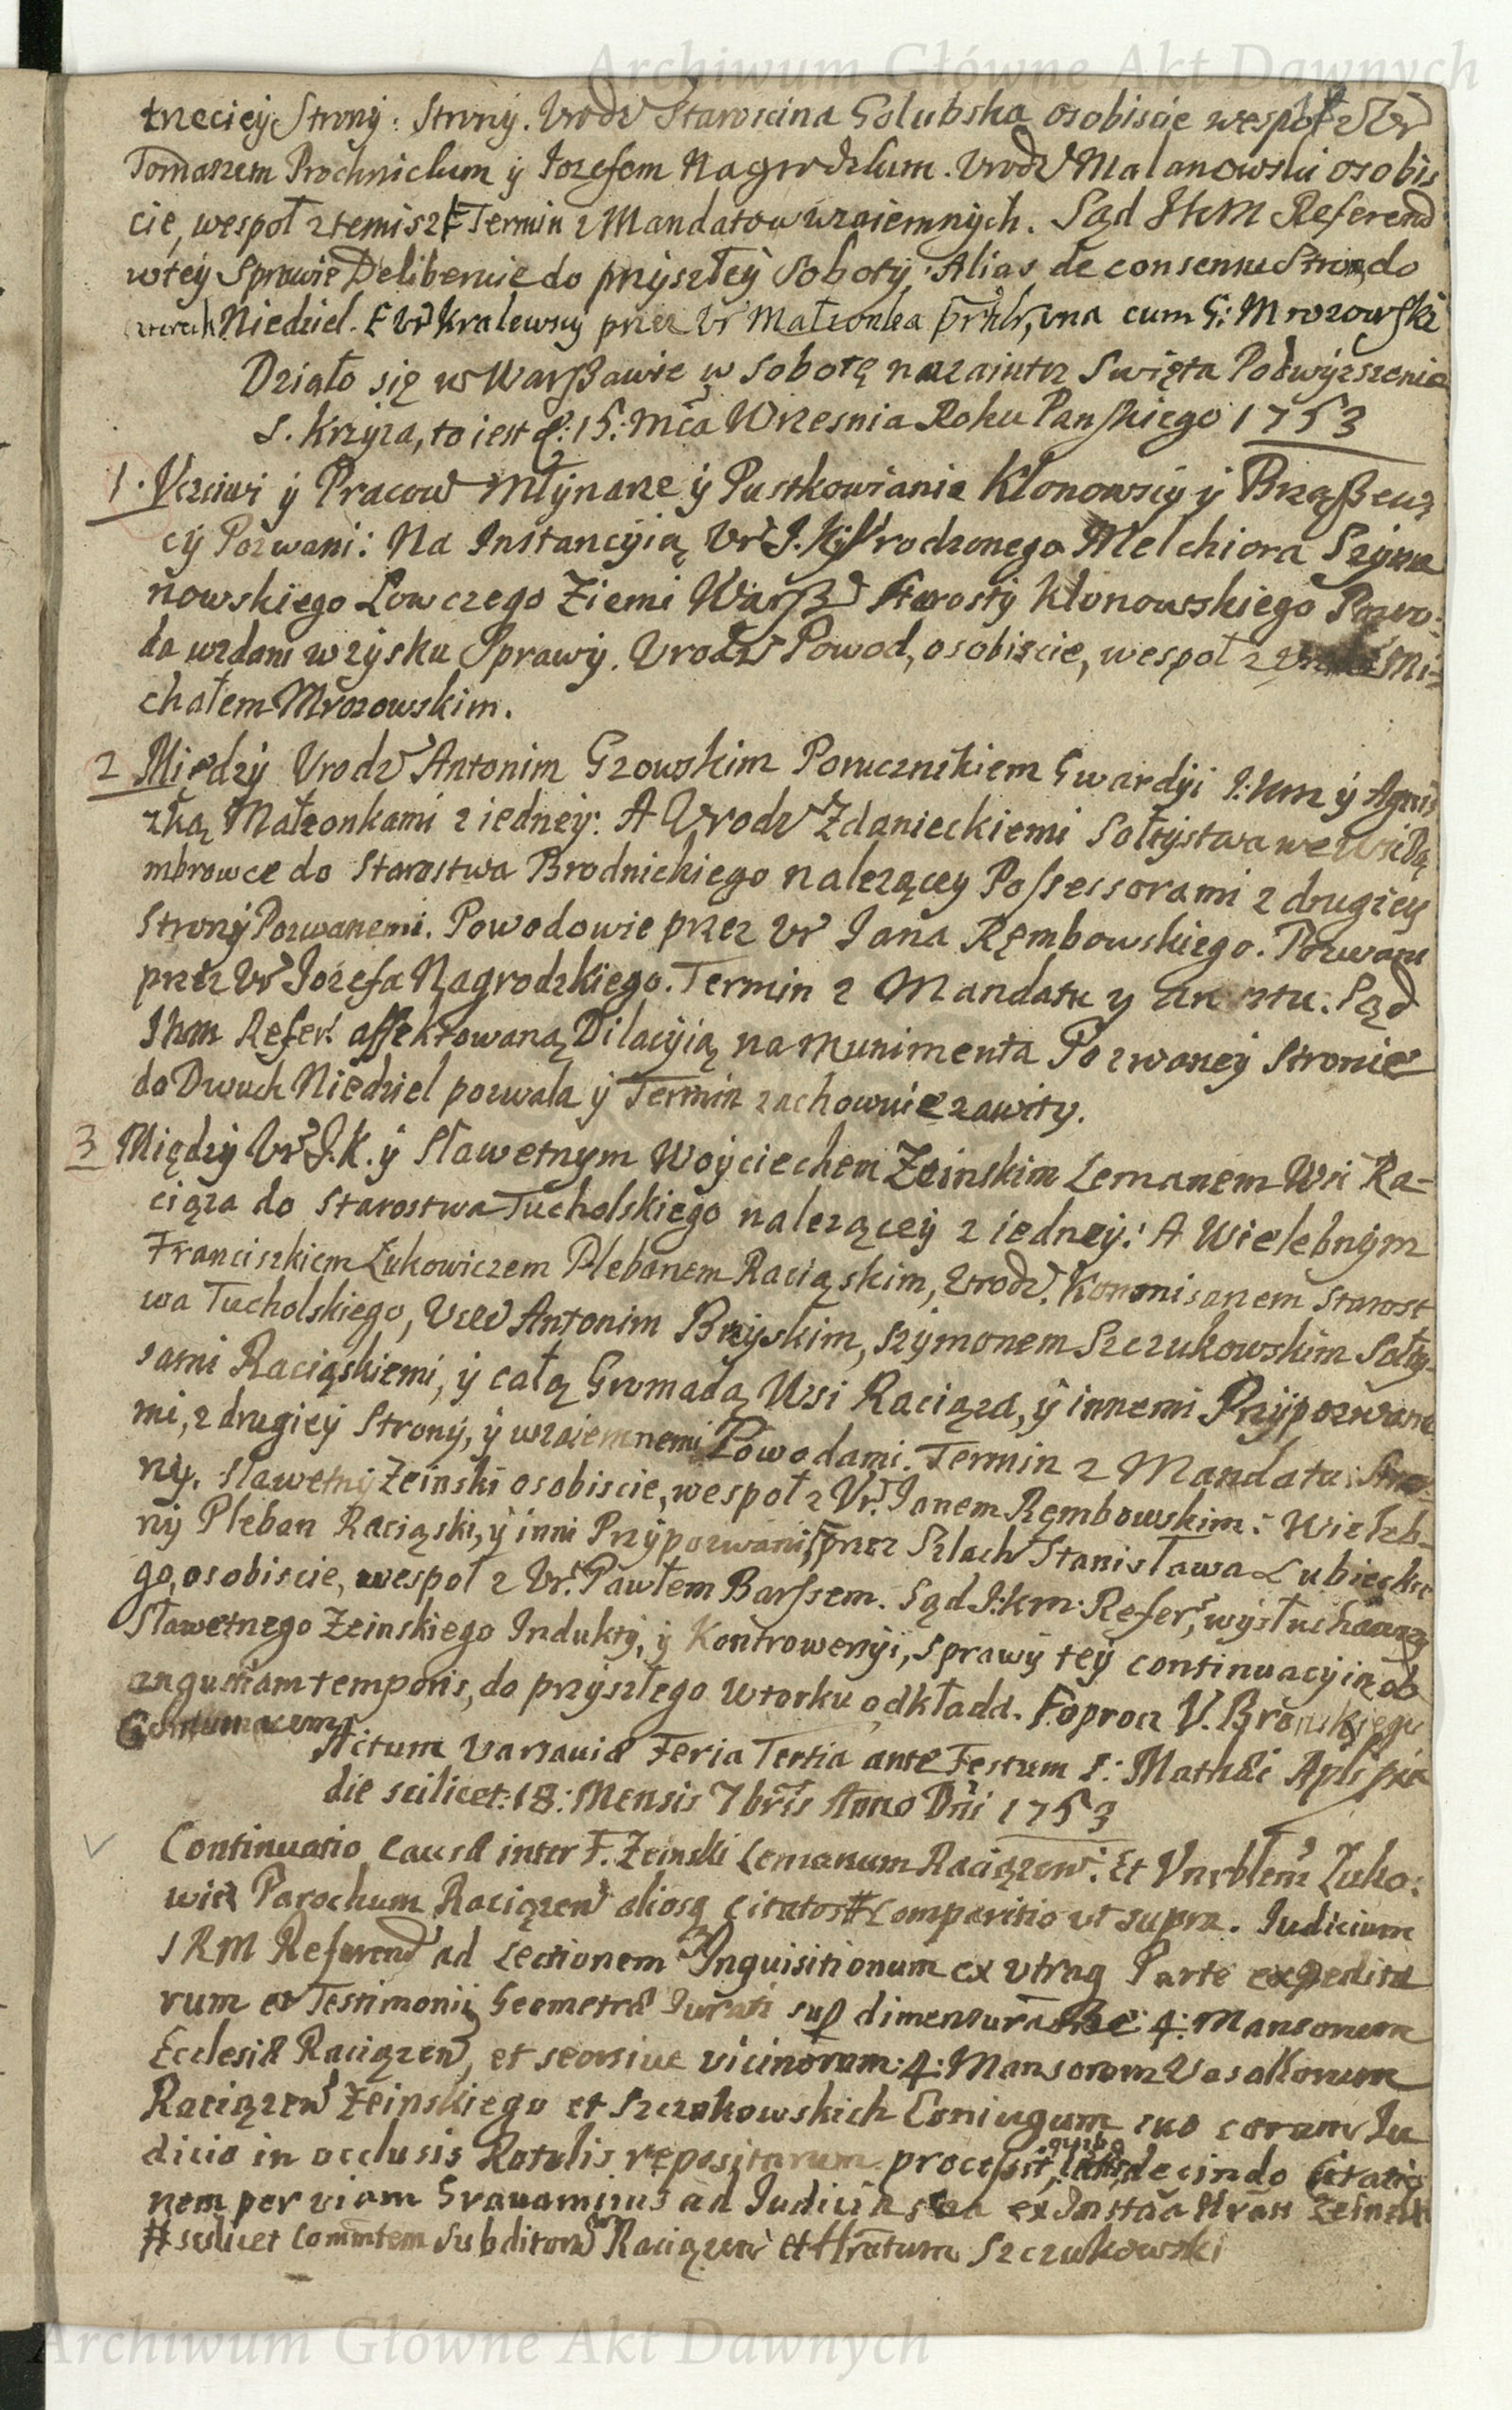 Archiwum Główne Akt Dawnych
trzeciey Strony: Strony. Urodz Starościna Golubska osobiscie wespoł z Ur
Tomaszem Prochnickim y Iozefem Nagrodzkim. Urodz Malanowski osobis
cie, wespoł z temisz Termin z Mandatow wzaiemnych. Sąd JKM Referend
w tey Sprawie Deliberuie do przyszłey Soboty, Alias de consensu Stron, do
czterech Niedziel. Ur Kralewscy przez Ur Małzonka una cum G: Mrozowski
Działo się w Warszawie w Sobotę nazaiutrz Swięta Podwyzszenia
S. Krzyza, to iest d: 15: Mca Wrzesnia Roku Panskiego 1753
1. Uczciwi y Pracow Młynarze y Pustkowianie Kłonowscy y Brząszew
cy Pozwani: Na Instancyią Ur J. K. Urodzonego Melchiora Szyma
nowskiego Łowczego Ziemi Warsz Starosty Kłonowskiego Powo-
da wzdani w zysku Sprawy. Urodz Powod, osobiscie, wespoł z Mi-
chałem Mrozowskim.
2 Między Urodz Antonim Gzowskim Porucznikiem Gwardyi J:Km y Agnis
zką Małzonkami z iedney: A Urodz Zdanieckiemi Sołtystwa we Wsi Dą
mbrowce do Starostwa Brodnickiego nalezącey Possessorami z drugiey
Strony Pozwanemi. Powodowie przez Ur Jana Rembowskiego. Pozwani
przez Ur Jozefa Nagrodzkiego. Termin z Mandatu y aresztu. Sąd
JKM Refer: affektowaną Dilacyią na Munimenta Pozwaney Stronie
do Dwuch Niedziel pozwala y Termin zachowuie zawity.
3 Między Ur J.K. y Sławetnym Woyciechem Zeinskim Lemanem Wsi Ra-
ciąza do Starostwa Tucholskiego nalezącey z iedney: A Wielebnym
Franciszkiem Łukowiczem Plebanem Raciąskim, Urodz. Kommisarzem Starost
wa Tucholskiego, Ucz Antonim Bryskim, Szymonem Szczukowskim Sołty-
sami Raciąskiemi, y całą Gromadą Wsi Raciąza, y innemi Przypozwane
mi, z drugiey Strony, y wzaiemnemi Powodami. Termin z Mandatu: Stro-
ny. Sławetny Zeinski osobiscie, wespoł z Ur. Janem Rembowskim: Wieleb-
ny Pleban Raciąski, y inni Przypozwani, przez Szlach Stanisława Lubieckie
go, osobiscie, wespoł z Ur. Pawłem Barssem. Sąd J:Km: Refer, wysłuchawszy
Sławetnego Zeinskiego Indukty, y Kontrowersyi, sprawy tey continuacyią ob
angustiam temporis, do przyszłego Wtorku odkłada. V. Bronskiego
Contumacem
Actum Varsaviæ Feria Tertia ante Festum S: Mathæi Apli
die scilicet: 18: Mensis 7bris Anno Dni 1753
Continuatio Causæ inter F. Zeinski Lemanum Raciązen. Et Vnrblem Łuko:
wicz Parochum Raciązen aliosq citatos # Comparitio ut supra. Iudicium
SRM Referend ad Lectionem Inquisitionum ex utraq Parte expedita
rum et Testimonii Geometræ Iurati sup dimensura 4: Mansorum
Ecclesiæ Raciązen, et seorsive vicinorum: 4: Mansorum Vasallorum
Raciązen Zeinskiego et Szczukowskich Coniugum suo coram Iu
dicio in occlusis Rotulis repositarum processit, deindo Citatio
nem per viam Gravaminis ad Iudicia sua ex Instãa Zeinski
# scilicet Commtem Subditorum Raciązen et Szczukowski
Archiwum Główne Akt Dawnych